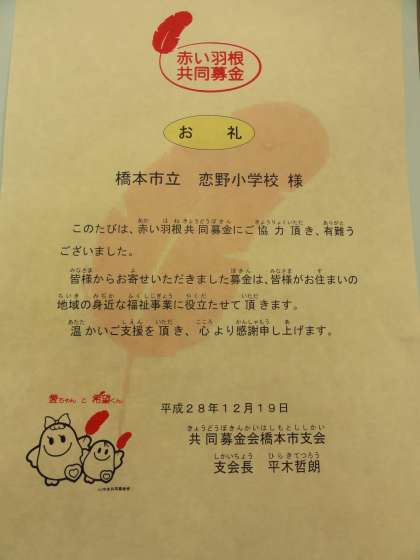 赤い羽根
共同募金
お礼
橋本市立 恋野小学校 様
このたびは、赤い羽根共同募金にご協力頂き、有難う
ございました。
皆様からお寄せいただきました募金は、皆様がお住まいの
地域の身近な福祉事業に役立たせて頂きます。
温かいご支援を頂き、心より感謝申し上げます。
愛ちゃん と 希望くん
平成28年12月19日
共同募金会橋本市支会
支会長 平木哲朗